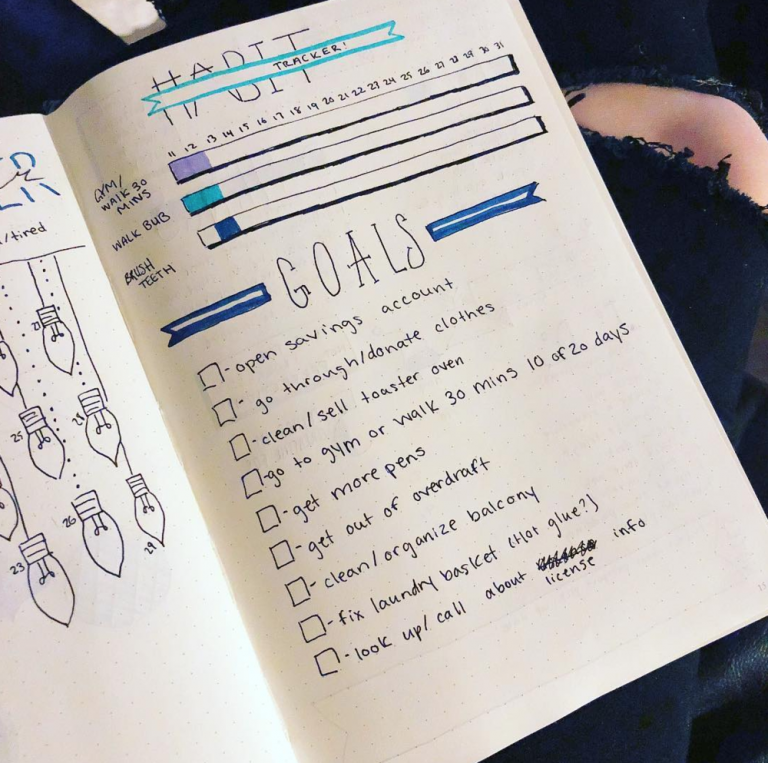 HABIT
TRACKER!
11 12 13 14 15 16 17 18 19 20 21 22 23 24 25 26 27 28 29 30 31
GYM/
WALK 30
MINS
WALK BUB
BRUSH
TEETH
GOALS
- open savings account
- go through/donate clothes
- clean/sell toaster oven
- go to gym or walk 30 mins 10 of 20 days
- get more pens
- get out of overdraft
- clean/organize balcony
- fix laundry basket (Hot glue?)
- look up/call about license info
/tired
21
25
28
26
29
23